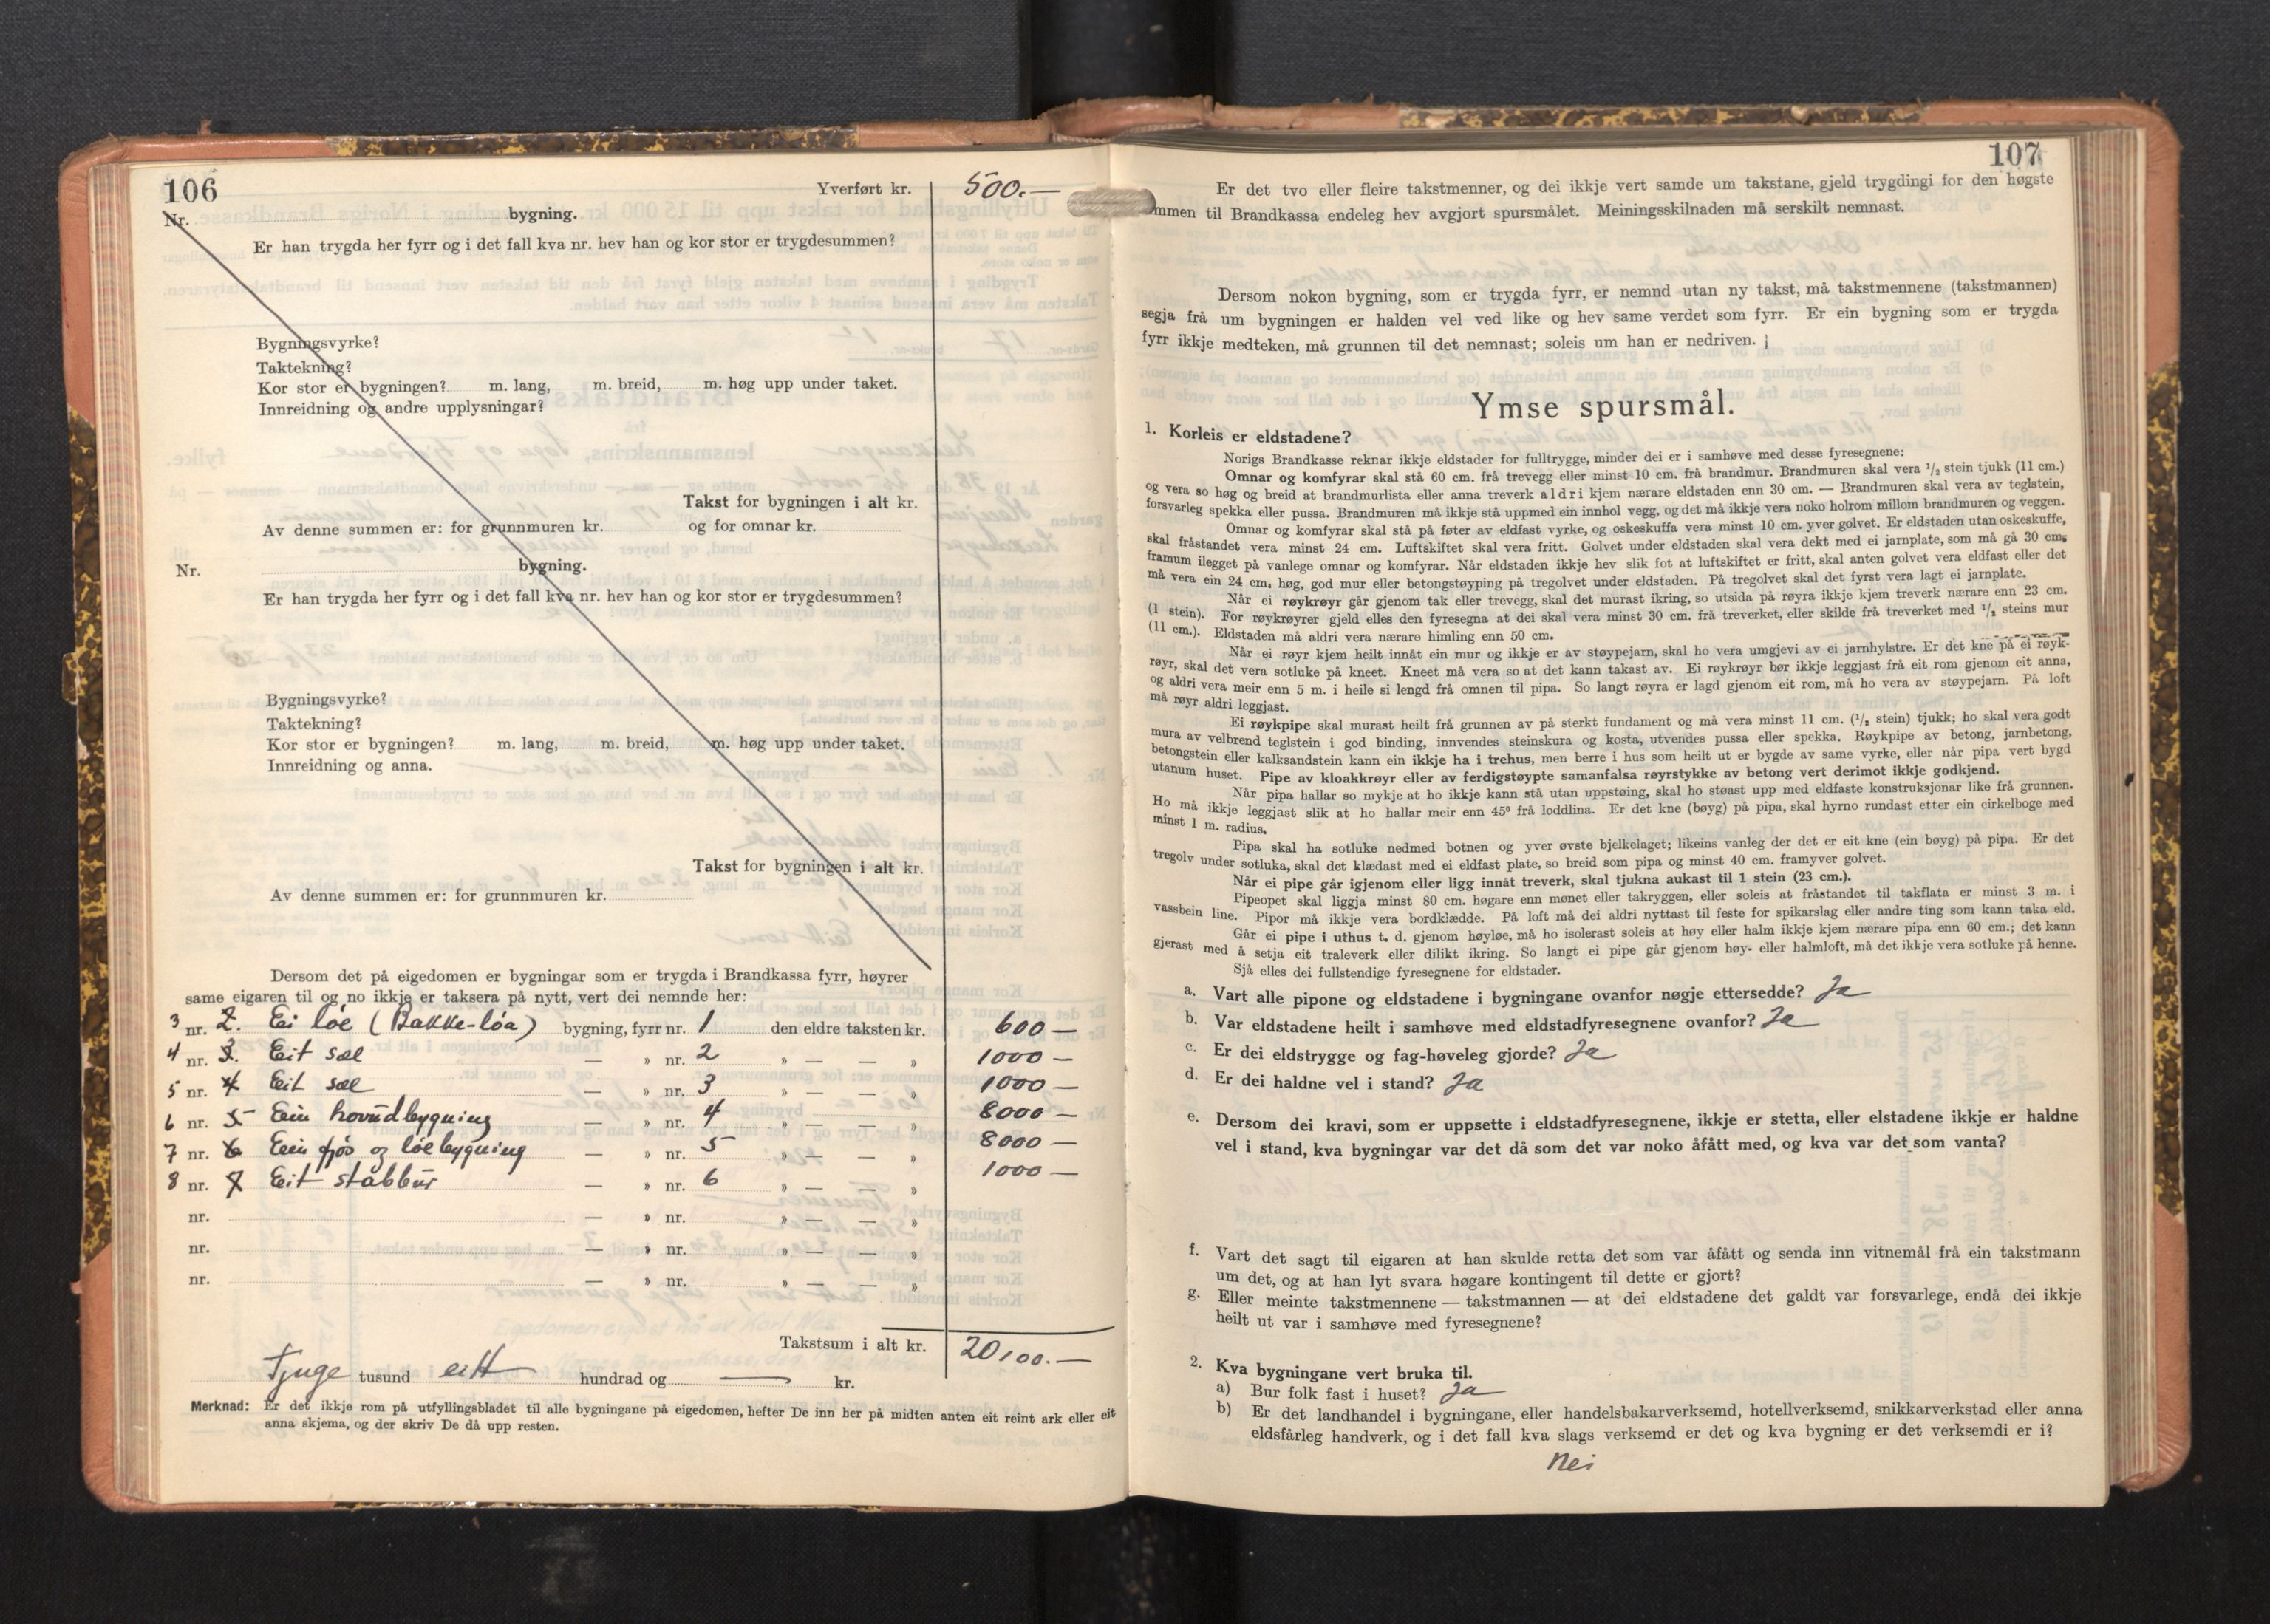 106
Yverført kr. 500.—
Nr. bygning.
Er han trygda her fyrr og i det fall kva nr. hev han og kor stor er trygdesummen?
Bygningsvyrke?
Taktekning?
Kor stor er bygningen? m. lang, m. breid, m. høg upp under taket.
Innreidning og andre upplysningar?
Takst for bygningen i alt kr.
Av denne summen er: for grunnmuren kr. og for omnar kr.
Nr. bygning.
Er han trygda her fyrr og i det fall kva nr. hev han og kor stor er trygdesummen?
Bygningsvyrke?
Taktekning?
Kor stor er bygningen? m. lang, m. breid, m. høg upp under taket.
Innreidning og anna.
Takst for bygningen i alt kr.
Av denne summen er: for grunnmuren kr.
Dersom det på eigedomen er bygningar som er trygda i Brandkassa fyrr, høyrer
same eigaren til og no ikkje er taksera på nytt, vert dei nemnde her:
3 nr. 2. Ei løe (Bakke-løa) bygning, fyrr nr. 1 den eldre taksten kr. 600 —
4 nr. 3. Eit sæl — » nr. 2 » — — » 1000 —
5 nr. 4 Eit sæl — » nr. 3 » — — » 1000 —
6 nr. 5 Ein hovudbygning — » nr. 4 » — — » 8000 —
7 nr. 6 Ein fjøs og løebygning — » nr. 5 » — — » 8000 —
8 nr. 7 Eit stabbur — » nr. 6 » — — » 1000 —
nr. — » nr. » — — »
nr. — » nr. » — — »
nr. — » nr. » — — »
Takstsum i alt kr. 20100.—
Tjuge tusund eitt hundrad og — kr.
Merknad: Er det ikkje rom på utfyllingsbladet til alle bygningane på eigedomen, hefter De inn her på midten anten eit reint ark eller eit
anna skjema, og der skriv De då upp resten.
107
Er det tvo eller fleire takstmenner, og dei ikkje vert samde um takstane, gjeld trygdingi for den høgste
mmen til Brandkassa endeleg hev avgjort spursmålet. Meiningsskilnaden må serskilt nemnast.
Dersom nokon bygning, som er trygda fyrr, er nemnd utan ny takst, må takstmennene (takstmannen)
segja frå um bygningen er halden vel ved like og hev same verdet som fyrr. Er ein bygning som er trygda
fyrr ikkje medteken, må grunnen til det nemnast; soleis um han er nedriven.
Ymse spursmål.
1. Korleis er eldstadene?
Norigs Brandkasse reknar ikkje eldstader for fulltrygge, minder dei er i samhøve med desse fyresegnene:
Omnar og komfyrar skal stå 60 cm. frå trevegg eller minst 10 cm. frå brandmur. Brandmuren skal vera ½ stein tjukk (11 cm.)
og vera so høg og breid at brandmurlista eller anna treverk aldri kjem nærare eldstaden enn 30 cm. — Brandmuren skal vera av teglstein,
forsvarleg spekka eller pussa. Brandmuren må ikkje stå uppmed ein innhol vegg, og det må ikkje vera noko holrom millom brandmuren og veggen.
Omnar og komfyrar skal stå på føter av eldfast vyrke, og oskeskuffa vera minst 10 cm. yver golvet. Er eldstaden utan oskeskuffe,
skal fråstandet vera minst 24 cm. Luftskiftet skal vera fritt. Golvet under eldstaden skal vera dekt med ei jarnplate, som må gå 30 cm.
framum ilegget på vanlege omnar og komfyrar. Når eldstaden ikkje hev slik fot at luftskiftet er fritt, skal anten golvet vera eldfast eller det
må vera ein 24 cm. høg, god mur eller betongstøyping på tregolvet under eldstaden. På tregolvet skal det fyrst vera lagt ei jarnplate.
Når ei røykrøyr går gjenom tak eller trevegg, skal det murast ikring, so utsida på røyra ikkje kjem treverk nærare enn 23 cm.
(1 stein). For røykrøyrer gjeld elles den fyresegna at dei skal vera minst 30 cm. frå treverket, eller skilde frå treverket med ½ steins mur
(11 cm.). Eldstaden må aldri vera nærare himling enn 50 cm.
Når ei røyr kjem heilt innåt ein mur og ikkje er av støypejarn, skal ho vera umgjevi av ei jarnhylstre. Er det kne på ei røyk-
røyr, skal det vera sotluke på kneet. Kneet må vera so at det kann takast av. Ei røykrøyr bør ikkje leggjast frå eit rom gjenom eit anna,
og aldri vera meir enn 5 m. i heile si lengd frå omnen til pipa. So langt røyra er lagd gjenom eit rom, må ho vera av støypejarn. På loft
må røyr aldri leggjast.
Ei røykpipe skal murast heilt frå grunnen av på sterkt fundament og må vera minst 11 cm. (½ stein) tjukk; ho skal vera godt
mura av velbrend teglstein i god binding, innvendes steinskura og kosta, utvendes pussa eller spekka. Røykpipe av betong, jarnbetong,
betongstein eller kalksandstein kann ein ikkje ha i trehus, men berre i hus som heilt ut er bygde av same vyrke, eller når pipa vert bygd
utanum huset. Pipe av kloakkrøyr eller av ferdigstøypte samanfalsa røyrstykke av betong vert derimot ikkje godkjend.
Når pipa hallar so mykje at ho ikkje kann stå utan uppstøing, skal ho støast upp med eldfaste konstruksjonar like frå grunnen.
Ho må ikkje leggjast slik at ho hallar meir enn 45° frå loddlina. Er det kne (bøyg) på pipa, skal hyrno rundast etter ein cirkelboge med
minst 1 m. radius.
Pipa skal ha sotluke nedmed botnen og yver øvste bjelkelaget; likeins vanleg der det er eit kne (ein bøyg) på pipa. Er det
tregolv under sotluka, skal det klædast med ei eldfast plate, so breid som pipa og minst 40 cm. framyver golvet.
Når ei pipe går igjenom eller ligg innåt treverk, skal tjukna aukast til 1 stein (23 cm.).
Pipeopet skal liggja minst 80 cm. høgare enn mønet eller takryggen, eller soleis at fråstandet til takflata er minst 3 m. i
vassbein line. Pipor må ikkje vera bordklædde. På loft må dei aldri nyttast til feste for spikarslag eller andre ting som kann taka eld.
Går ei pipe i uthus t. d. gjenom høyløe, må ho isolerast soleis at høy eller halm ikkje kjem nærare pipa enn 60 cm.; det kann
gjerast med å setja eit traleverk eller dilikt ikring. So langt ei pipe går gjenom høy- eller halmloft, må det ikkje vera sotluke på henne.
Sjå elles dei fullstendige fyresegnene for eldstader.
a. Vart alle pipone og eldstadene i bygningane ovanfor nøgje ettersedde? Ja
b. Var eldstadene heilt i samhøve med eldstadfyresegnene ovanfor? Ja
c. Er dei eldstrygge og fag-høveleg gjorde? Ja
d. Er dei haldne vel i stand? Ja
e. Dersom dei kravi, som er uppsette i eldstadfyresegnene, ikkje er stetta, eller elstadene ikkje er haldne
vel i stand, kva bygningar var det då som det var noko åfått med, og kva var det som vanta?
f. Vart det sagt til eigaren at han skulde retta det som var åfått og senda inn vitnemål frå ein takstmann
um det, og at han lyt svara høgare kontingent til dette er gjort?
g. Eller meinte takstmennene — takstmannen — at dei eldstadene det galdt var forsvarlege, endå dei ikkje
heilt ut var i samhøve med fyresegnene?
2. Kva bygningane vert bruka til.
a) Bur folk fast i huset? Ja
b) Er det landhandel i bygningane, eller handelsbakarverksemd, hotellverksemd, snikkarverkstad eller anna
eldsfårleg handverk, og i det fall kva slags verksemd er det og kva bygning er det verksemdi er i?
Nei